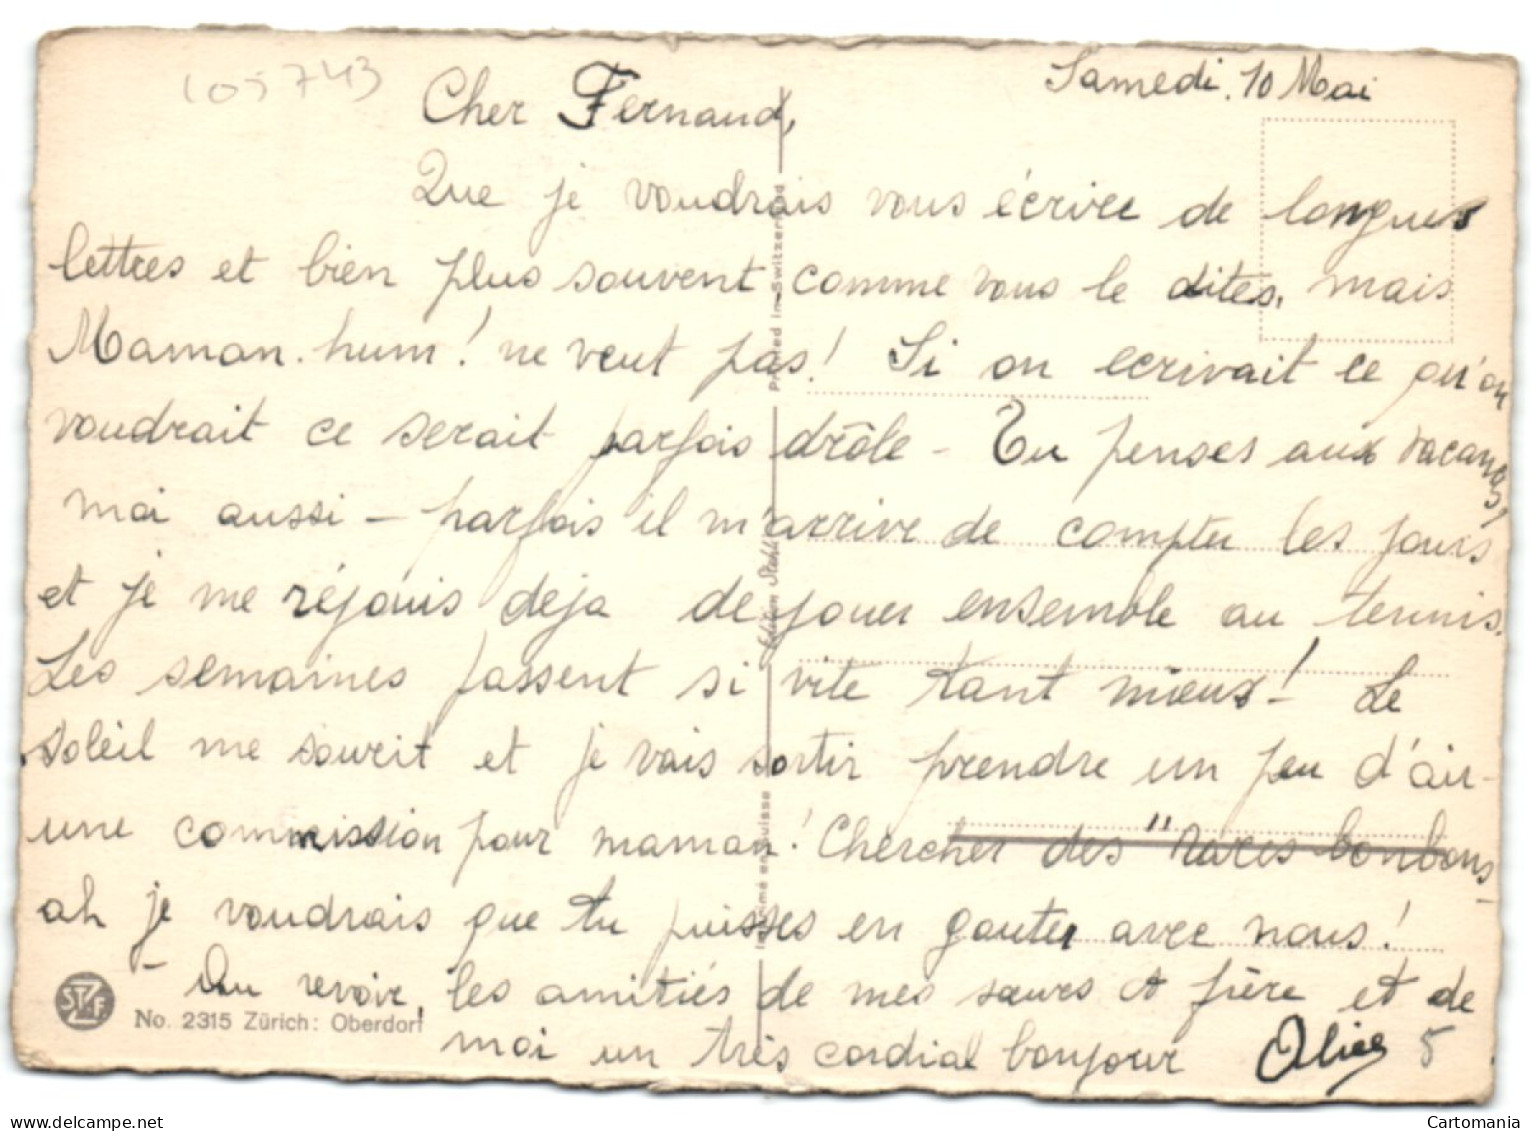 105743
Samedi. 10 Mai
Cher Fernand,
Que je voudrais vous écrire de longues
lettres et bien plus souvent comme vous le dites, mais
Maman. hum! ne veut pas! Si on ecrivait ce qu'on
voudrait ce serait parfois drôle - Tu penses aux vacances,
moi aussi - parfois il m'arrive de compter les jours
et je me réjouis deja de jouer ensemble au tennis.
Les semaines passent si vite tant mieux! Le
soleil me sourit et je vais sortir prendre un peu d'air -
une commission pour maman! Chercher des "rares bonbons -
ah je voudrais que tu puisses en gouter avec nous!
- Au revoir, les amitiés de mes sœurs et frère et de
moi un très cordial bonjour Alice 5
STZF
No. 2315 Zürich: Oberdorf
Imprimé en Suisse Edition Stehli Printed in Switzerland
My-sweet-home
Cartomania